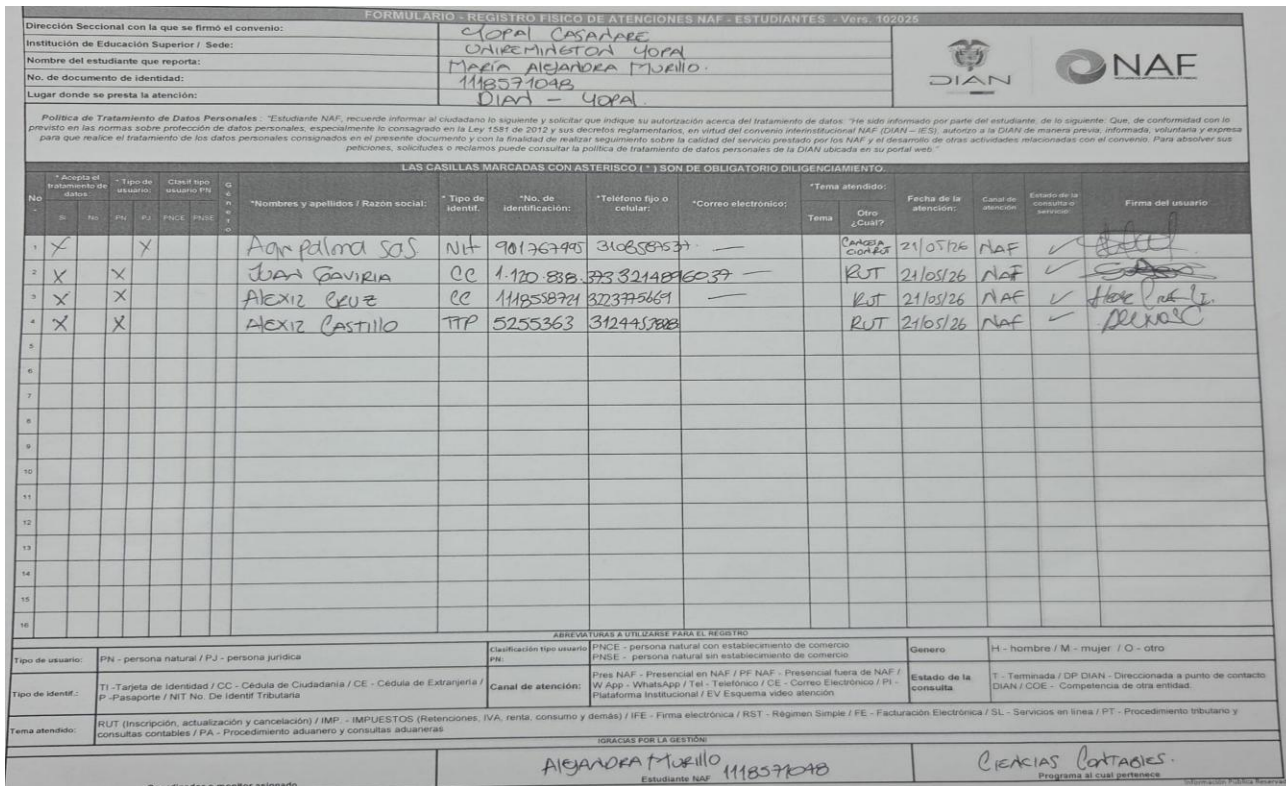 FORMULARIO - REGISTRO FISICO DE ATENCIONES NAF - ESTUDIANTES - Vers. 102025
Dirección Seccional con la que se firmó el convenio: YOPAL CASANARE
Institución de Educación Superior / Sede: UNIREMINGTON YOPAL
Nombre del estudiante que reporta: MARÍA AlejANDRA MURillO.
No. de documento de identidad: 1118571048
Lugar donde se presta la atención: DIAN - YOPAL.
DIAN
NAF
Política de Tratamiento de Datos Personales : "Estudiante NAF, recuerde informar al ciudadano lo siguiente y solicitar que indique su autorización acerca del tratamiento de datos: "He sido informado por parte del estudiante, de lo siguiente: Que, de conformidad con lo
previsto en las normas sobre protección de datos personales, especialmente lo consagrado en la Ley 1581 de 2012 y sus decretos reglamentarios, en virtud del convenio interinstitucional NAF (DIAN – IES), autorizo a la DIAN de manera previa, informada, voluntaria y expresa
para que realice el tratamiento de los datos personales consignados en el presente documento y con la finalidad de realizar seguimiento sobre la calidad del servicio prestado por los NAF y el desarrollo de otras actividades relacionadas con el convenio. Para absolver sus
peticiones, solicitudes o reclamos puede consultar la política de tratamiento de datos personales de la DIAN ubicada en su portal web."
LAS CASILLAS MARCADAS CON ASTERISCO ( * ) SON DE OBLIGATORIO DILIGENCIAMIENTO.
No. * Acepta el tratamiento de datos Si No * Tipo de usuario: PN PJ Clasif tipo usuario PN PNCE PNSE Género *Nombres y apellidos / Razón social: * Tipo de identif. *No. de identificación: *Teléfono fijo o celular: *Correo electrónico: *Tema atendido: Tema Otro ¿Cual? Fecha de la atención: Canal de atención Estado de la consulta o servicio: Firma del usuario
1 X X Agripalma sas Nit 901767495 3108589537 — CANCELA CION RUT 21/05/26 NAF ✓
2 X X JUAN GAVIRIA CC 1.120.838.373 3214896037 — RUT 21/05/26 NAF ✓
3 X X AlEXIZ CRUZ CC 1118558721 3223775669 — RUT 21/05/26 NAF ✓
4 X X AlEXIZ CASTillO TTP 5255363 RUT 21/05/26 NAF ✓
5
6
7
8
9
10
11
12
13
14
15
16
ABREVIATURAS A UTILIZARSE PARA EL REGISTRO
Tipo de usuario: PN - persona natural / PJ - persona juridica Clasificación tipo usuario PN: PNCE - persona natural con establecimiento de comercio PNSE - persona natural sin establecimiento de comercio Genero H - hombre / M - mujer / O - otro
Tipo de identif.: TI -Tarjeta de Identidad / CC - Cédula de Ciudadanía / CE - Cédula de Extranjería / P -Pasaporte / NIT No. De Identif Tributaria Canal de atención: Pres NAF - Presencial en NAF / PF NAF - Presencial fuera de NAF / W App - WhatsApp / Tel - Telefónico / CE - Correo Electrónico / PI - Plataforma Institucional / EV Esquema video atención Estado de la consulta T - Terminada / DP DIAN - Direccionada a punto de contacto DIAN / COE - Competencia de otra entidad.
Tema atendido: RUT (Inscripción, actualización y cancelación) / IMP. - IMPUESTOS (Retenciones, IVA, renta, consumo y demás) / IFE - Firma electrónica / RST - Régimen Simple / FE - Facturación Electrónica / SL - Servicios en linea / PT - Procedimiento tributario y
consultas contables / PA - Procedimiento aduanero y consultas aduaneras
¡GRACIAS POR LA GESTIÓN!
AlejANDRA MURillO 1118571048 CIENCIAS CONTABLES.
Estudiante NAF Programa al cual pertenece
Información Pública Reservada